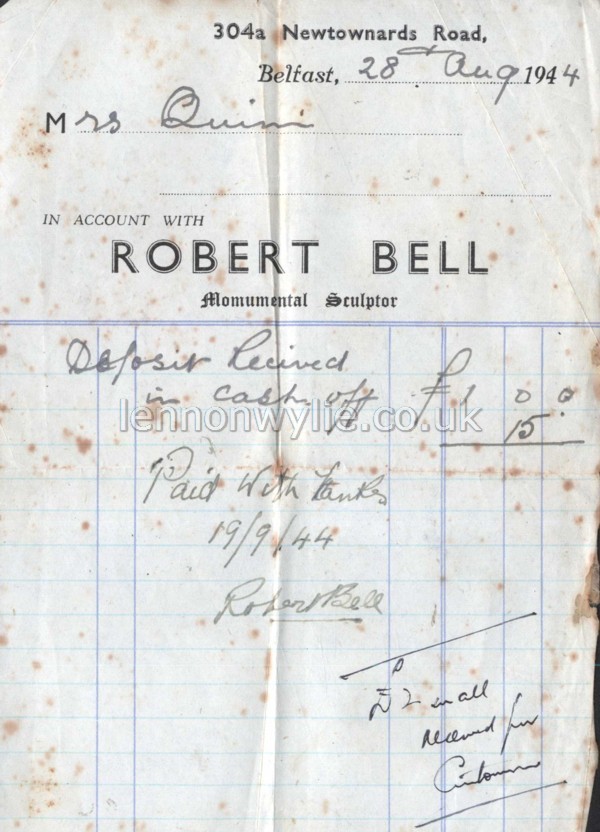 304a Newtownards Road,
Belfast, 28th Aug 1944
Mrs Quinn
IN ACCOUNT WITH
ROBERT BELL
Momumental Sculptor
Deposit Recived
in cash off £1 0 0
15
lennonwylie.co.uk
Paid With Tanks
19/9/44
Robert Bell
£2 in all
received for